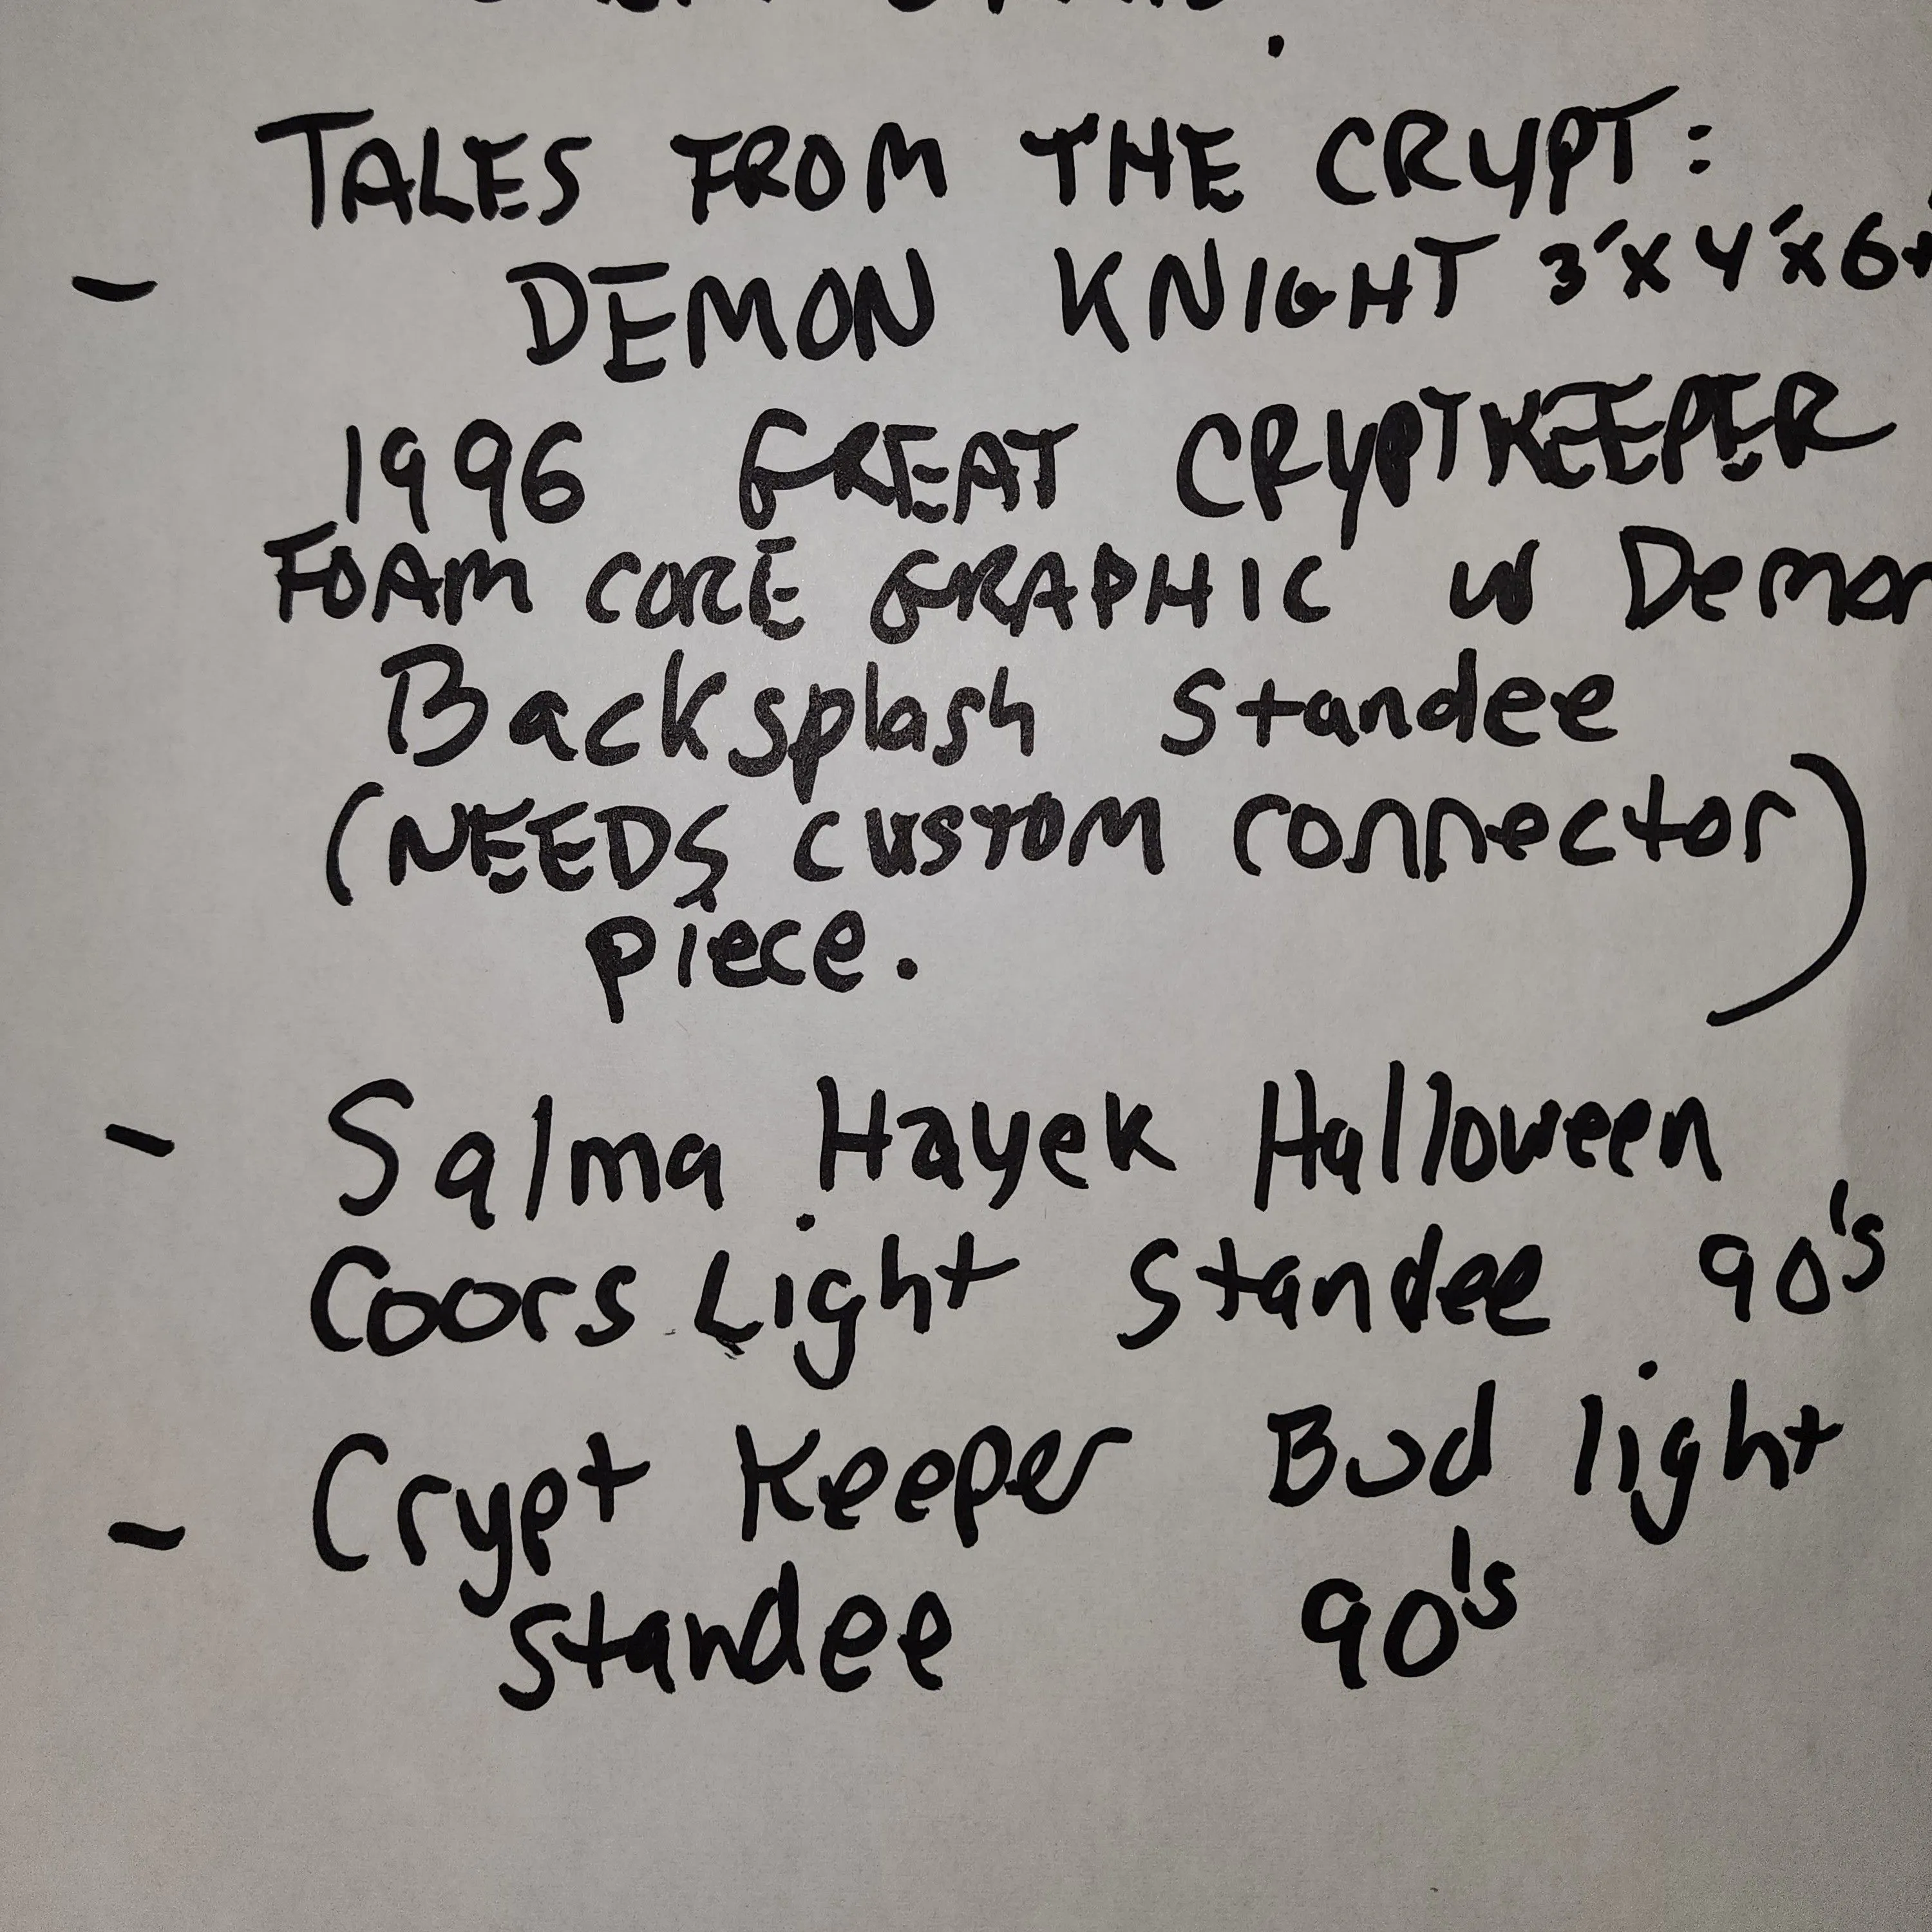 TALES FROM THE CRYPT:
- DEMON KNIGHT 3'x4'x6
1996 GREAT CRYPTKEEPER
FOAM CORE GRAPHIC W Demon
Backsplash Standee
(NEEDS CUSTOM connector)
piece.
- Salma Hayek Halloween
Coors Light Standee 90's
- Crypt Keeper Bud light
Standee 90's